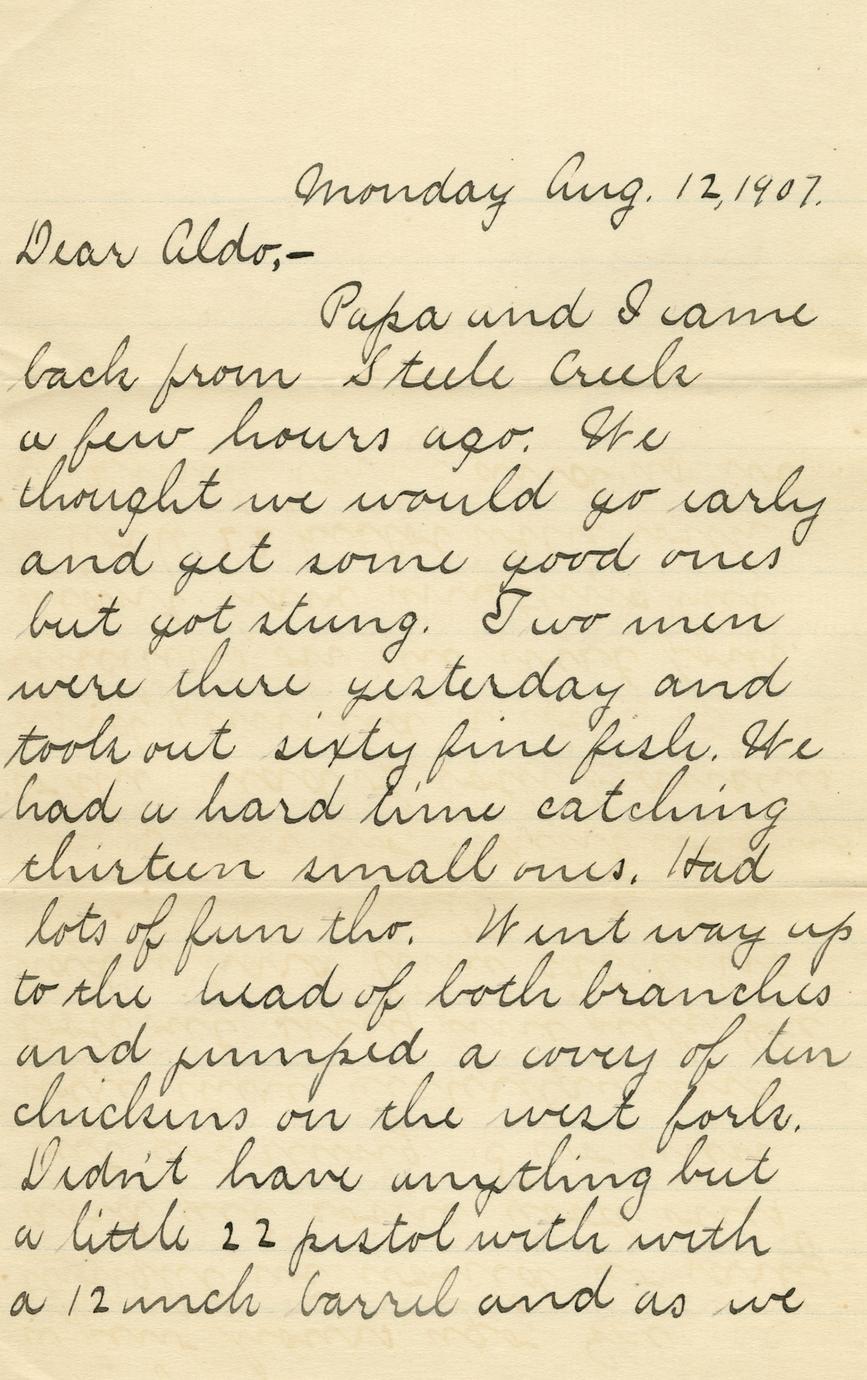 Monday Aug. 12, 1907.
Dear Aldo,-
Papa and I came
back from Steele Creek
a few hours ago. We
thought we would go early
and get some good ones
but got stung. Two men
were there yesterday and
took out sixty fine fish. We
had a hard time catching
thirteen small ones. Had
lots of fun tho. Went way up
to the head of both branches
and jumped a covey of ten
chickens on the west fork.
Didn't have anything but
a little 22 pistol with with
a 12 inch barrel and as we